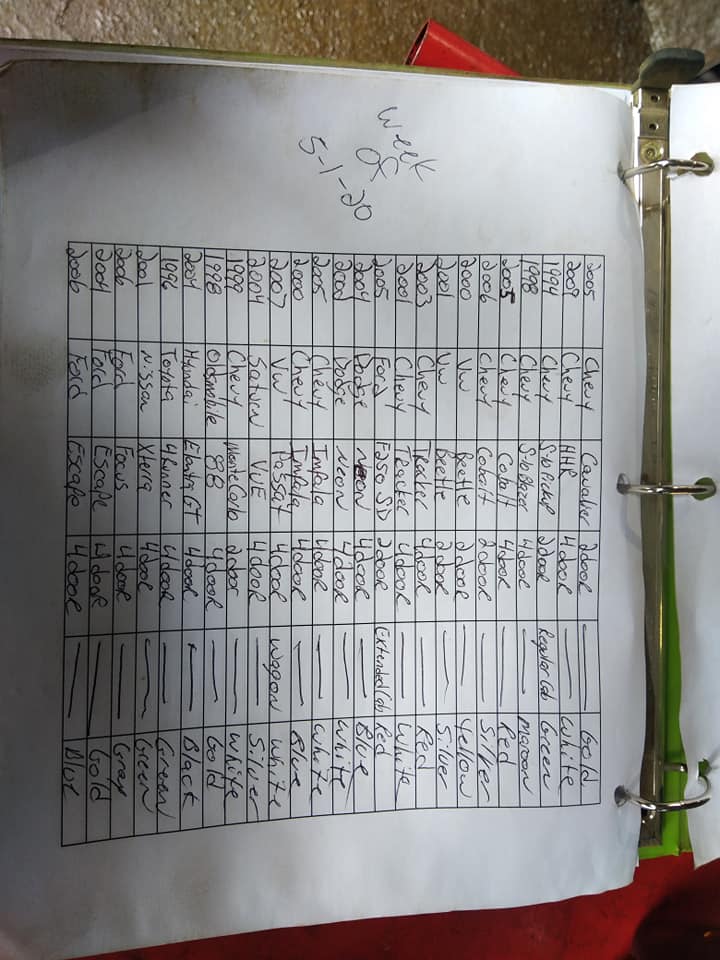 Week
OF
5-1-20
2005 Chevy Cavalier 2dooR — Gold
2009 Chevy HHR 4dooR — White
1994 Chevy S-10 Pickup 2dooR Regular Cab Green
1998 Chevy S-10 Blazer 4dooR — Maroon
2005 Chevy Cobalt 4dooR — Red
2006 Chevy Cobalt 2dooR — Silver
2000 VW Beetle 2dooR — Yellow
2001 VW Beetle 2dooR — Silver
2003 Chevy Tracker 4dooR — Red
2001 Chevy Tracker 4dooR — White
2005 Ford F250 SD 2dooR Extended Cab Red
2004 Dodge Neon 4dooR — Blue
2002 Dodge Neon 4dooR — White
2005 Chevy Impala 4dooR — White
2000 Chevy Impala 4dooR — Blue
2007 VW Passat 4dooR Wagon White
2004 Saturn VUE 4dooR — Silver
1999 Chevy Monte Carlo 2dooR — White
1998 Oldsmobile 88 4dooR — Gold
2004 Hyundai Elantra GT 4dooR — Black
1996 Toyota 4Runner 4dooR — Green
2001 Nissan Xterra 4dooR — Green
2006 Ford Focus 4dooR — Gray
2004 Ford Escape 4dooR — Gold
2006 Ford Escape 4dooR — Blue